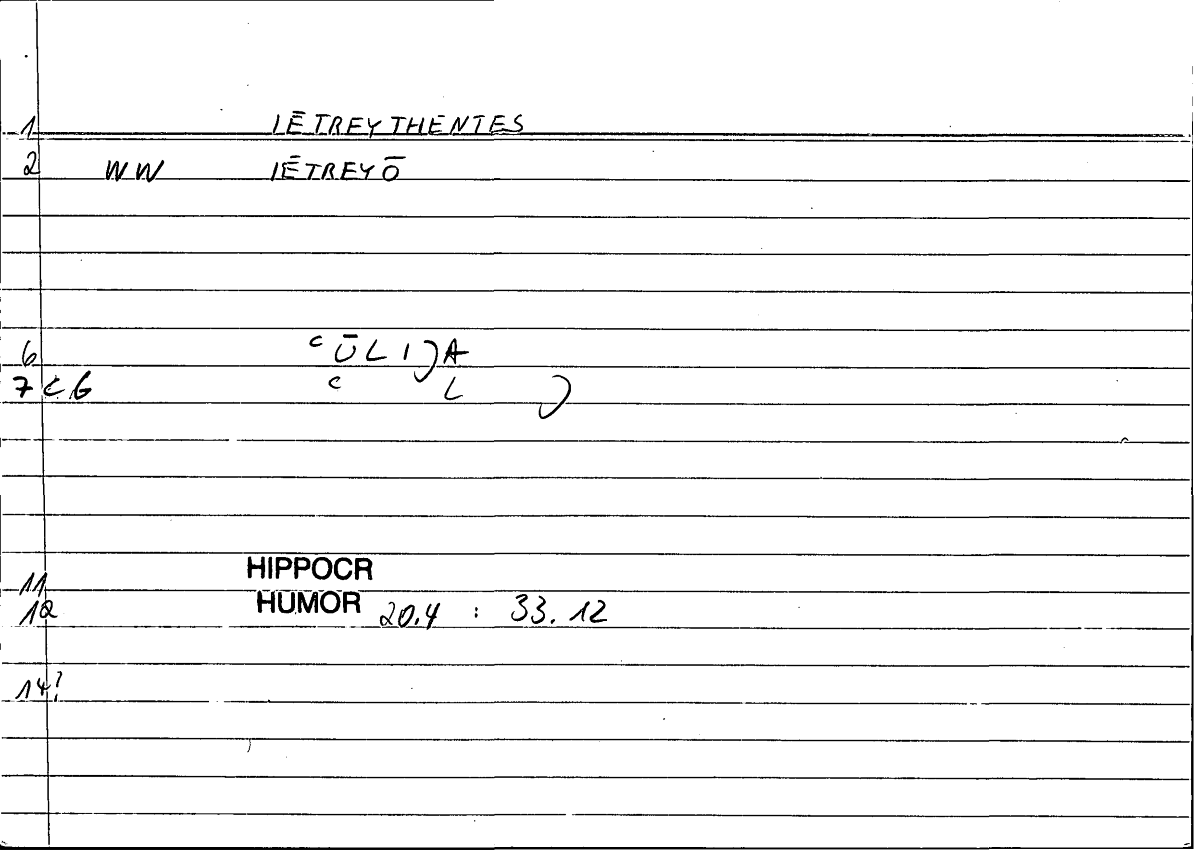 1 IĒTREYTHENTES
2 WW IĒTREYŌ
6 ᶜŪLIJA
7 < 6 c L J
11 HIPPOCR
12 HUMOR 20.4 : 33.12
14?